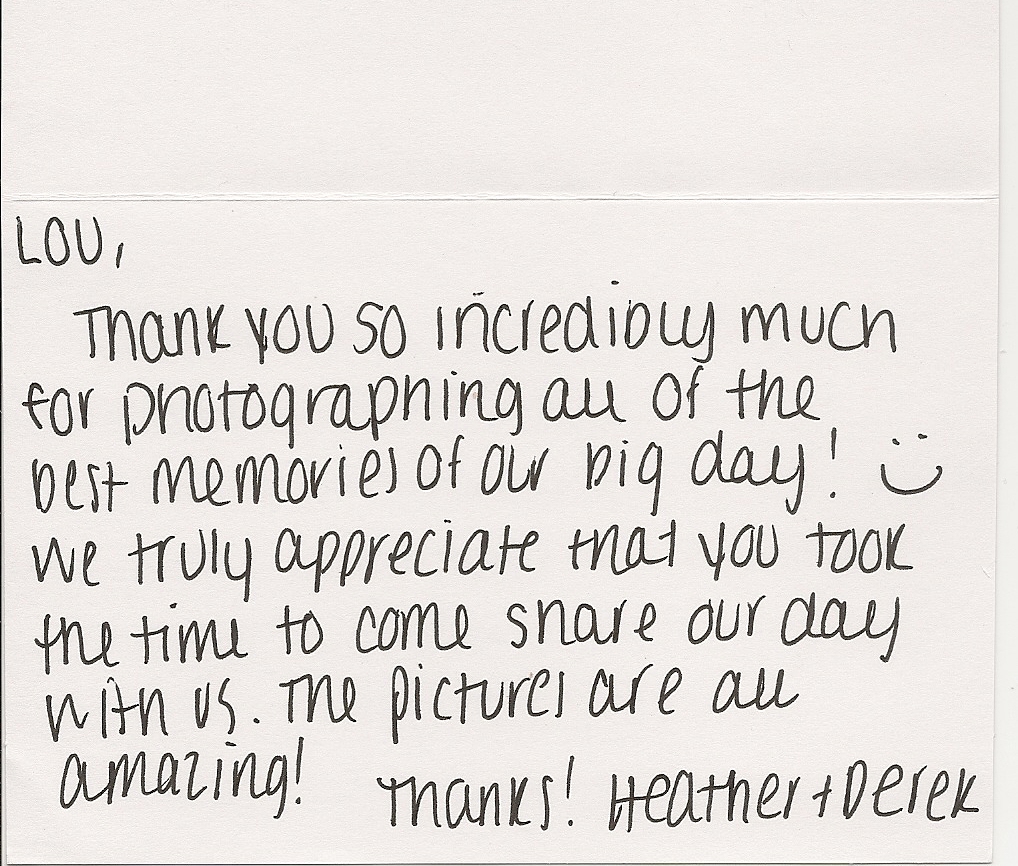 LOU,
Thank you so incredibly much
for photographing all of the
best memories of our big day! :)
We truly appreciate that you took
the time to come share our day
with us. The pictures are all
amazing! Thanks! Heather + Derek